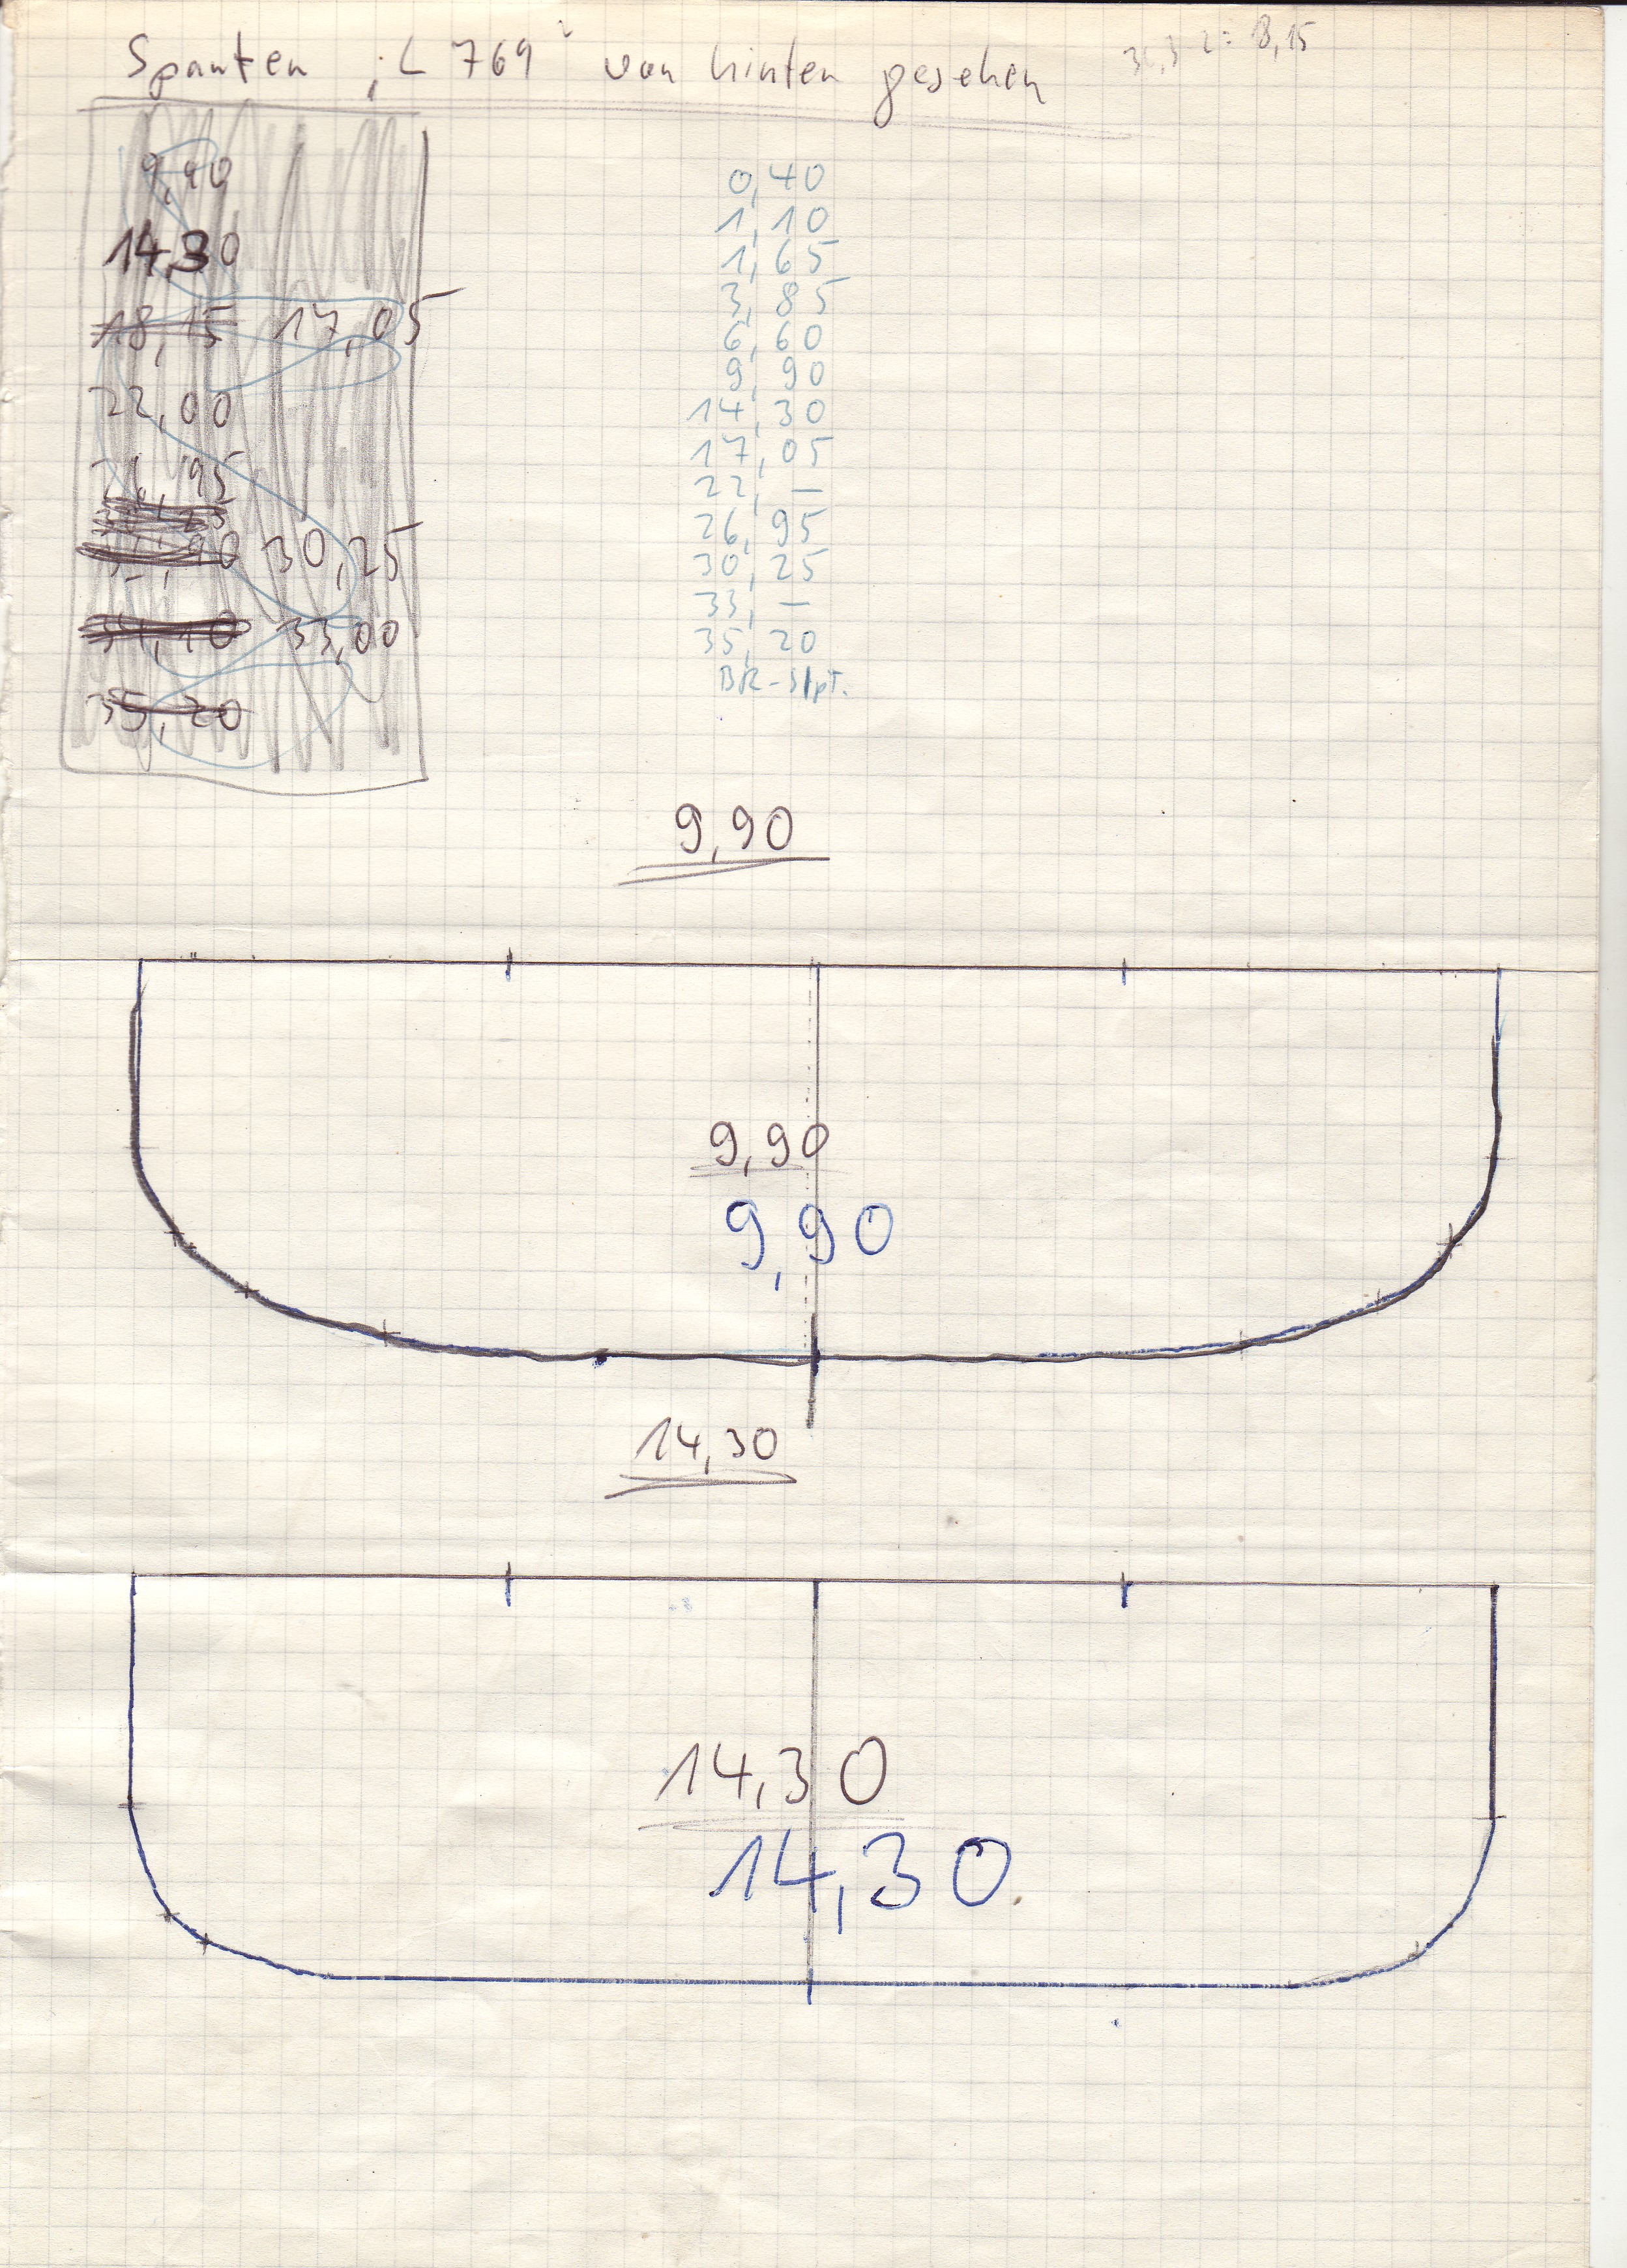 Spanten ; L 769² von hinten gesehen
2 = 18,15
9,90
14,30
18,15 17,05
22,00
26,95
30,25
34,10 33,00
35,20
0,40
1,10
1,65
3,85
6,60
9,90
14,30
17,05
22,—
26,95
30,25
33,—
35,20
9,90
9,90
9,90
14,30
14,30
14,30